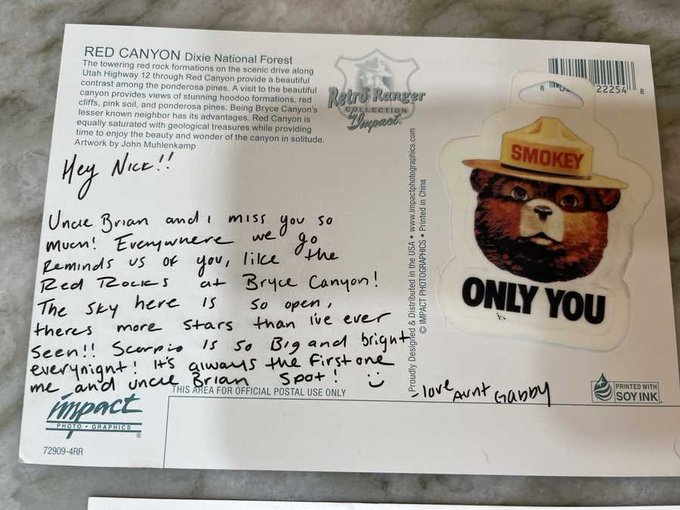 RED CANYON Dixie National Forest
The towering red rock formations on the scenic drive along
Utah Highway 12 through Red Canyon provide a beautiful
contrast among the ponderosa pines. A visit to the beautiful
canyon provides views of stunning hoodoo formations, red
cliffs, pink soil, and ponderosa pines. Being Bryce Canyon's
lesser known neighbor has its advantages. Red Canyon is
equally saturated with geological treasures while providing
time to enjoy the beauty and wonder of the canyon in solitude.
Artwork by John Muhlenkamp
Retro Ranger
COLLECTION
Impact
Hey Nick!!
Uncle Brian and i miss you so
much! Everywhere we go
Reminds us of you, like the
Red Rocks at Bryce Canyon!
The sky here is so open,
theres more stars than i've ever
seen!! Scorpio is so Big and bright
everynight! It's always the first one
me and uncle Brian spot!
-love Aunt Gabby
THIS AREA FOR OFFICIAL POSTAL USE ONLY
impact
PHOTO • GRAPHICS
®
72909-4RR
Proudly Designed & Distributed in the USA • www.impactphotographics.com
© IMPACT PHOTOGRAPHICS • Printed in China
8
22254
8
SMOKEY
ONLY YOU
PRINTED WITH
SOY INK